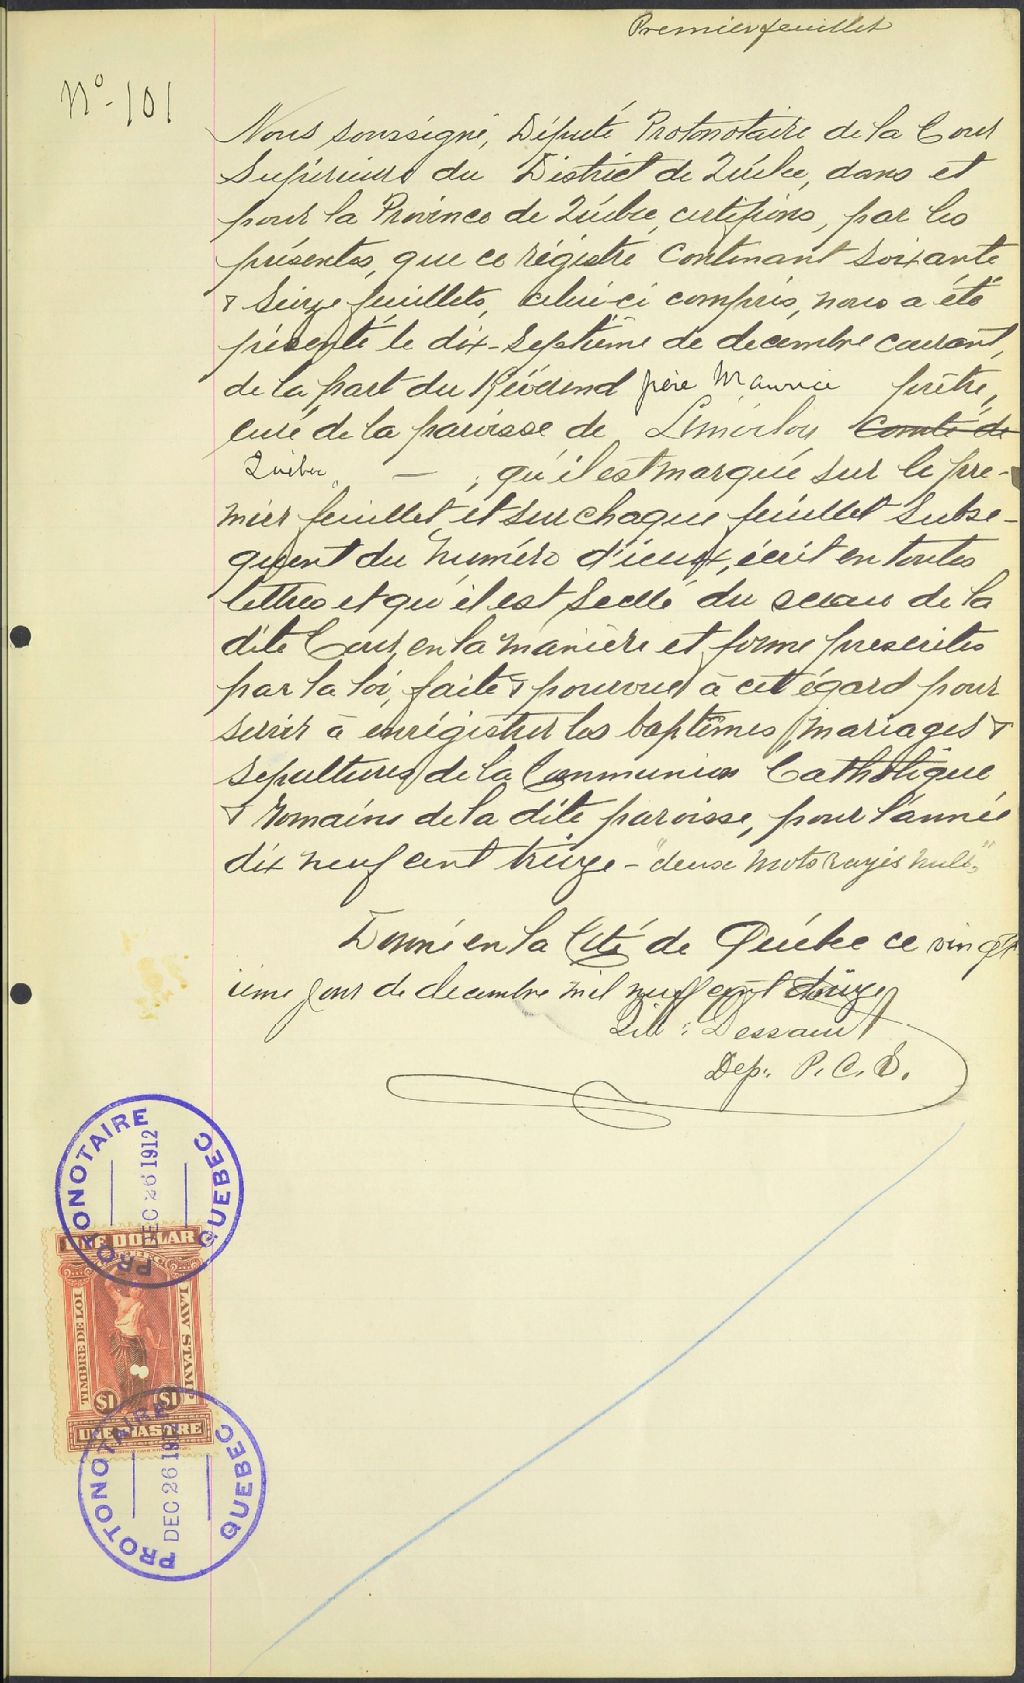 Premier feuillet
No - 101
Nous soussigné, Député Protonotaire de la Cour
Supérieure du District de Québec, dans et
pour la Province de Québec, certifions, par les
présentes, que ce régistre contenant soixante
& seize feuillets, celui-ci compris, nous a été
présenté le dix-septième de decembre courant,
de la part du Révérend père Maurice prêtre,
curé de la paroisse de Limoilou Comté de
Québec — ; qu'il est marqué sur le pre-
mier feuillet, et sur chaque feuillet subse-
quent du numéro d'iceux, écrit en toutes
lettres et qu'il est scellé du sceau de la
dite Cour, en la manière et forme prescrites
par la loi, faite & pourvue à cet égard pour
servir à enrégistrer les baptêmes, mariages &
sépultures de la Communion Catholique
& romaine de la dite paroisse, pour l'année
dix neuf cent treize - "deux mots rayés nuls"
Donné en la Cité de Québec ce vingt
ième jour de decembre mil neuf cent douze
Dessain
Dep. P. C. S.
PROTONOTAIRE QUEBEC
DEC 26 1912
ONE DOLLAR
TIMBRE DE LOI
LAW STAMP
$1 $1
UNE PIASTRE
PROTONOTAIRE QUEBEC
DEC 26 1912